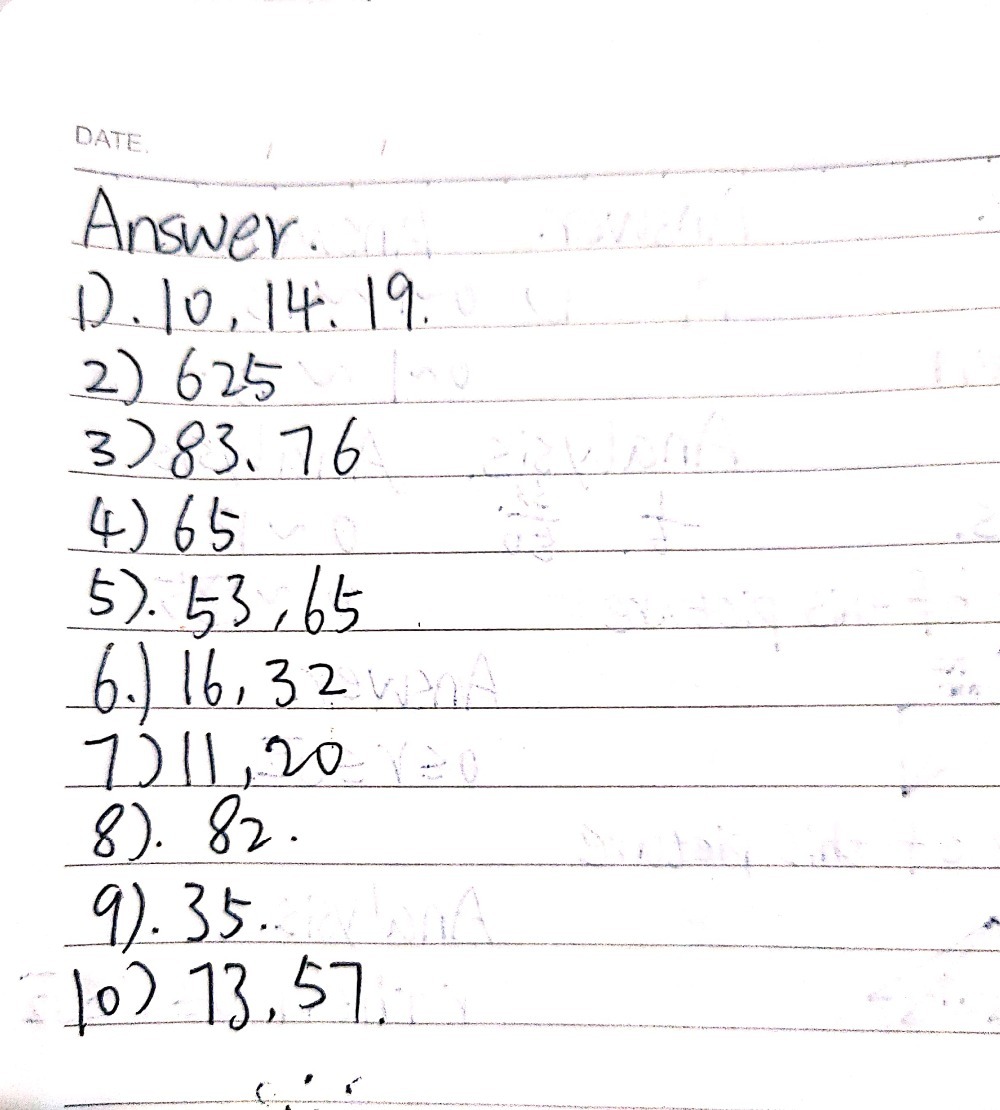 DATE. / /
Answer.
1). 10, 14. 19.
2) 625
3) 83、76
4) 65
5). 53, 65
6.) 16, 32
7) 11, 20
8). 82.
9). 35.
10) 73, 57.